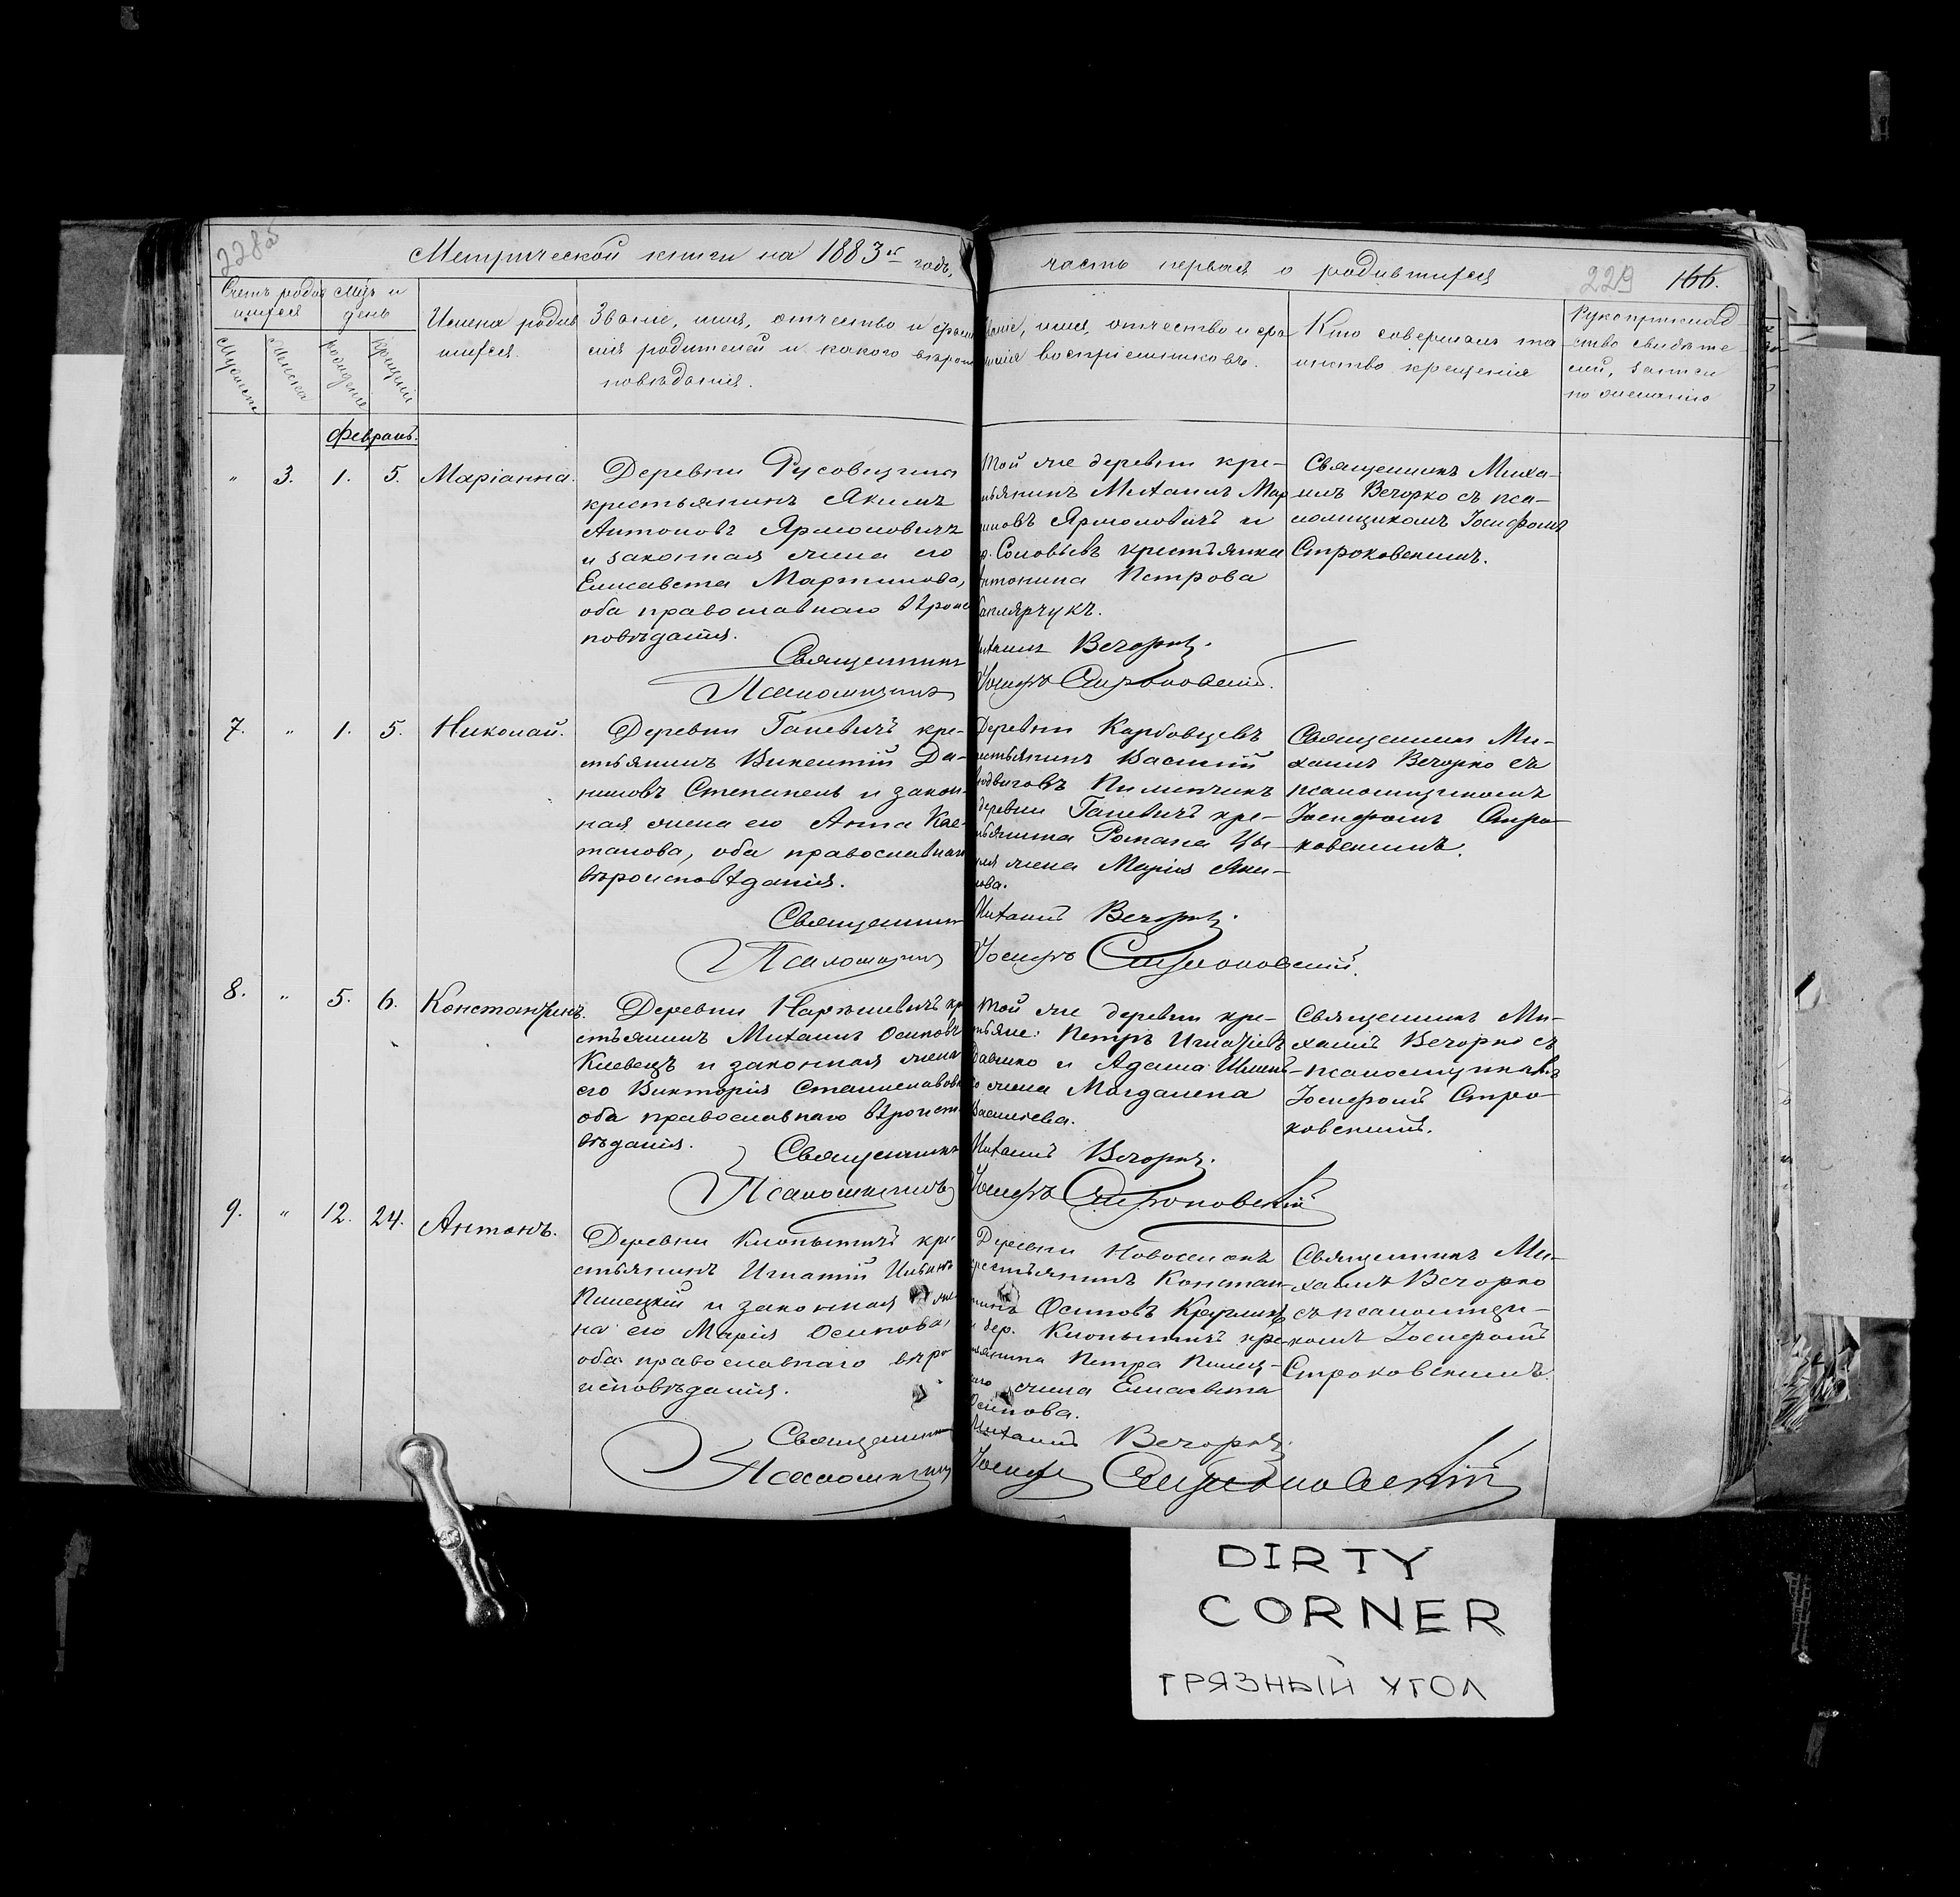 228б
Метрической книги на 1883й годъ,
часть первая о родившихся
229 166.
Счетъ родив Мцъ и
шихся день
Мужеска Женска рожденія крещенія
Имена родив
шихся.
Званіе, имя, отчество и фами
лія родителей и какого вѣроис
повѣданія.
Званіе, имя, отчество и фа
милія воспріемниковъ.
Кто совершалъ та
инство крещенія
Рукоприклад
ство свидѣте
лей, записи
по желанію
Февраль.
" 3. 1. 5. Маріанна.
Деревни
крестьянинъ Якимъ
Антоновъ Ярмоловичъ
и законная жена его
Елисавета Мартинова,
оба православнаго вѣроис
повѣданія.
Той же деревни кре-
стьянинъ Михаилъ Мар
тиновъ Ярмоловичъ и
д. Соловьевъ крестьянка
Антонина Петрова
Священникъ Миха-
илъ Вечорко съ пса-
ломщикомъ Іосифомъ
Строковскимъ.
Священникъ Михаилъ Вечорко.
Псаломщикъ Іосифъ Строковскій.
7. " 1. 5. Николай.
Деревни Ганевичъ кре-
стьянинъ Викентій Да-
ниловъ Степанець и закон-
ная жена его Анна Кае-
танова, оба православнаго
вѣроисповѣданія.
Деревни Карбовцевъ
крестьянинъ Василій
Людвиговъ Пилипчикъ
деревни Ганевичъ кре-
стьянина Романа
жена Марія Яки-
мова.
Священникъ Ми-
хаилъ Вечорко съ
псаломщикомъ
Іосифомъ Стро-
ковскимъ.
Священникъ Михаилъ Вечорко.
Псаломщикъ Іосифъ Строковскій.
8. " 5. 6. Константинъ.
Деревни кре
стьянинъ Михаилъ Осиповъ
Киевецъ и законная жена
его Викторія Станиславова
оба православнаго вѣроиспо
вѣданія.
Той же деревни кре-
стьяне: Петръ Игнатіевъ
и Адама
жена Магдалена
Васильева.
Священникъ Ми-
хаилъ Вечорко съ
псаломщикомъ
Іосифомъ Стро-
ковскимъ.
Священникъ Михаилъ Вечорко.
Псаломщикъ Іосифъ Строковскій
9. " 12. 24. Антонъ.
Деревни Клопытичъ кре
стьянинъ Игнатій
Пилецкій и законная же
на его Марія Осипова,
оба православнаго вѣро
исповѣданія.
Деревни Новоселокъ
крестьянинъ Констан-
тинъ Осиповъ
и дер. Клопытичъ кре-
стьянина Петра Пилец-
каго жена Елисавета
Осипова.
Священникъ Ми-
хаилъ Вечорко
съ псаломщи-
комъ Іосифомъ
Строковскимъ.
Священникъ Михаилъ Вечорко.
Псаломщикъ Іосифъ Строковскій
DIRTY
CORNER
ГРЯЗНЫЙ УГОЛ